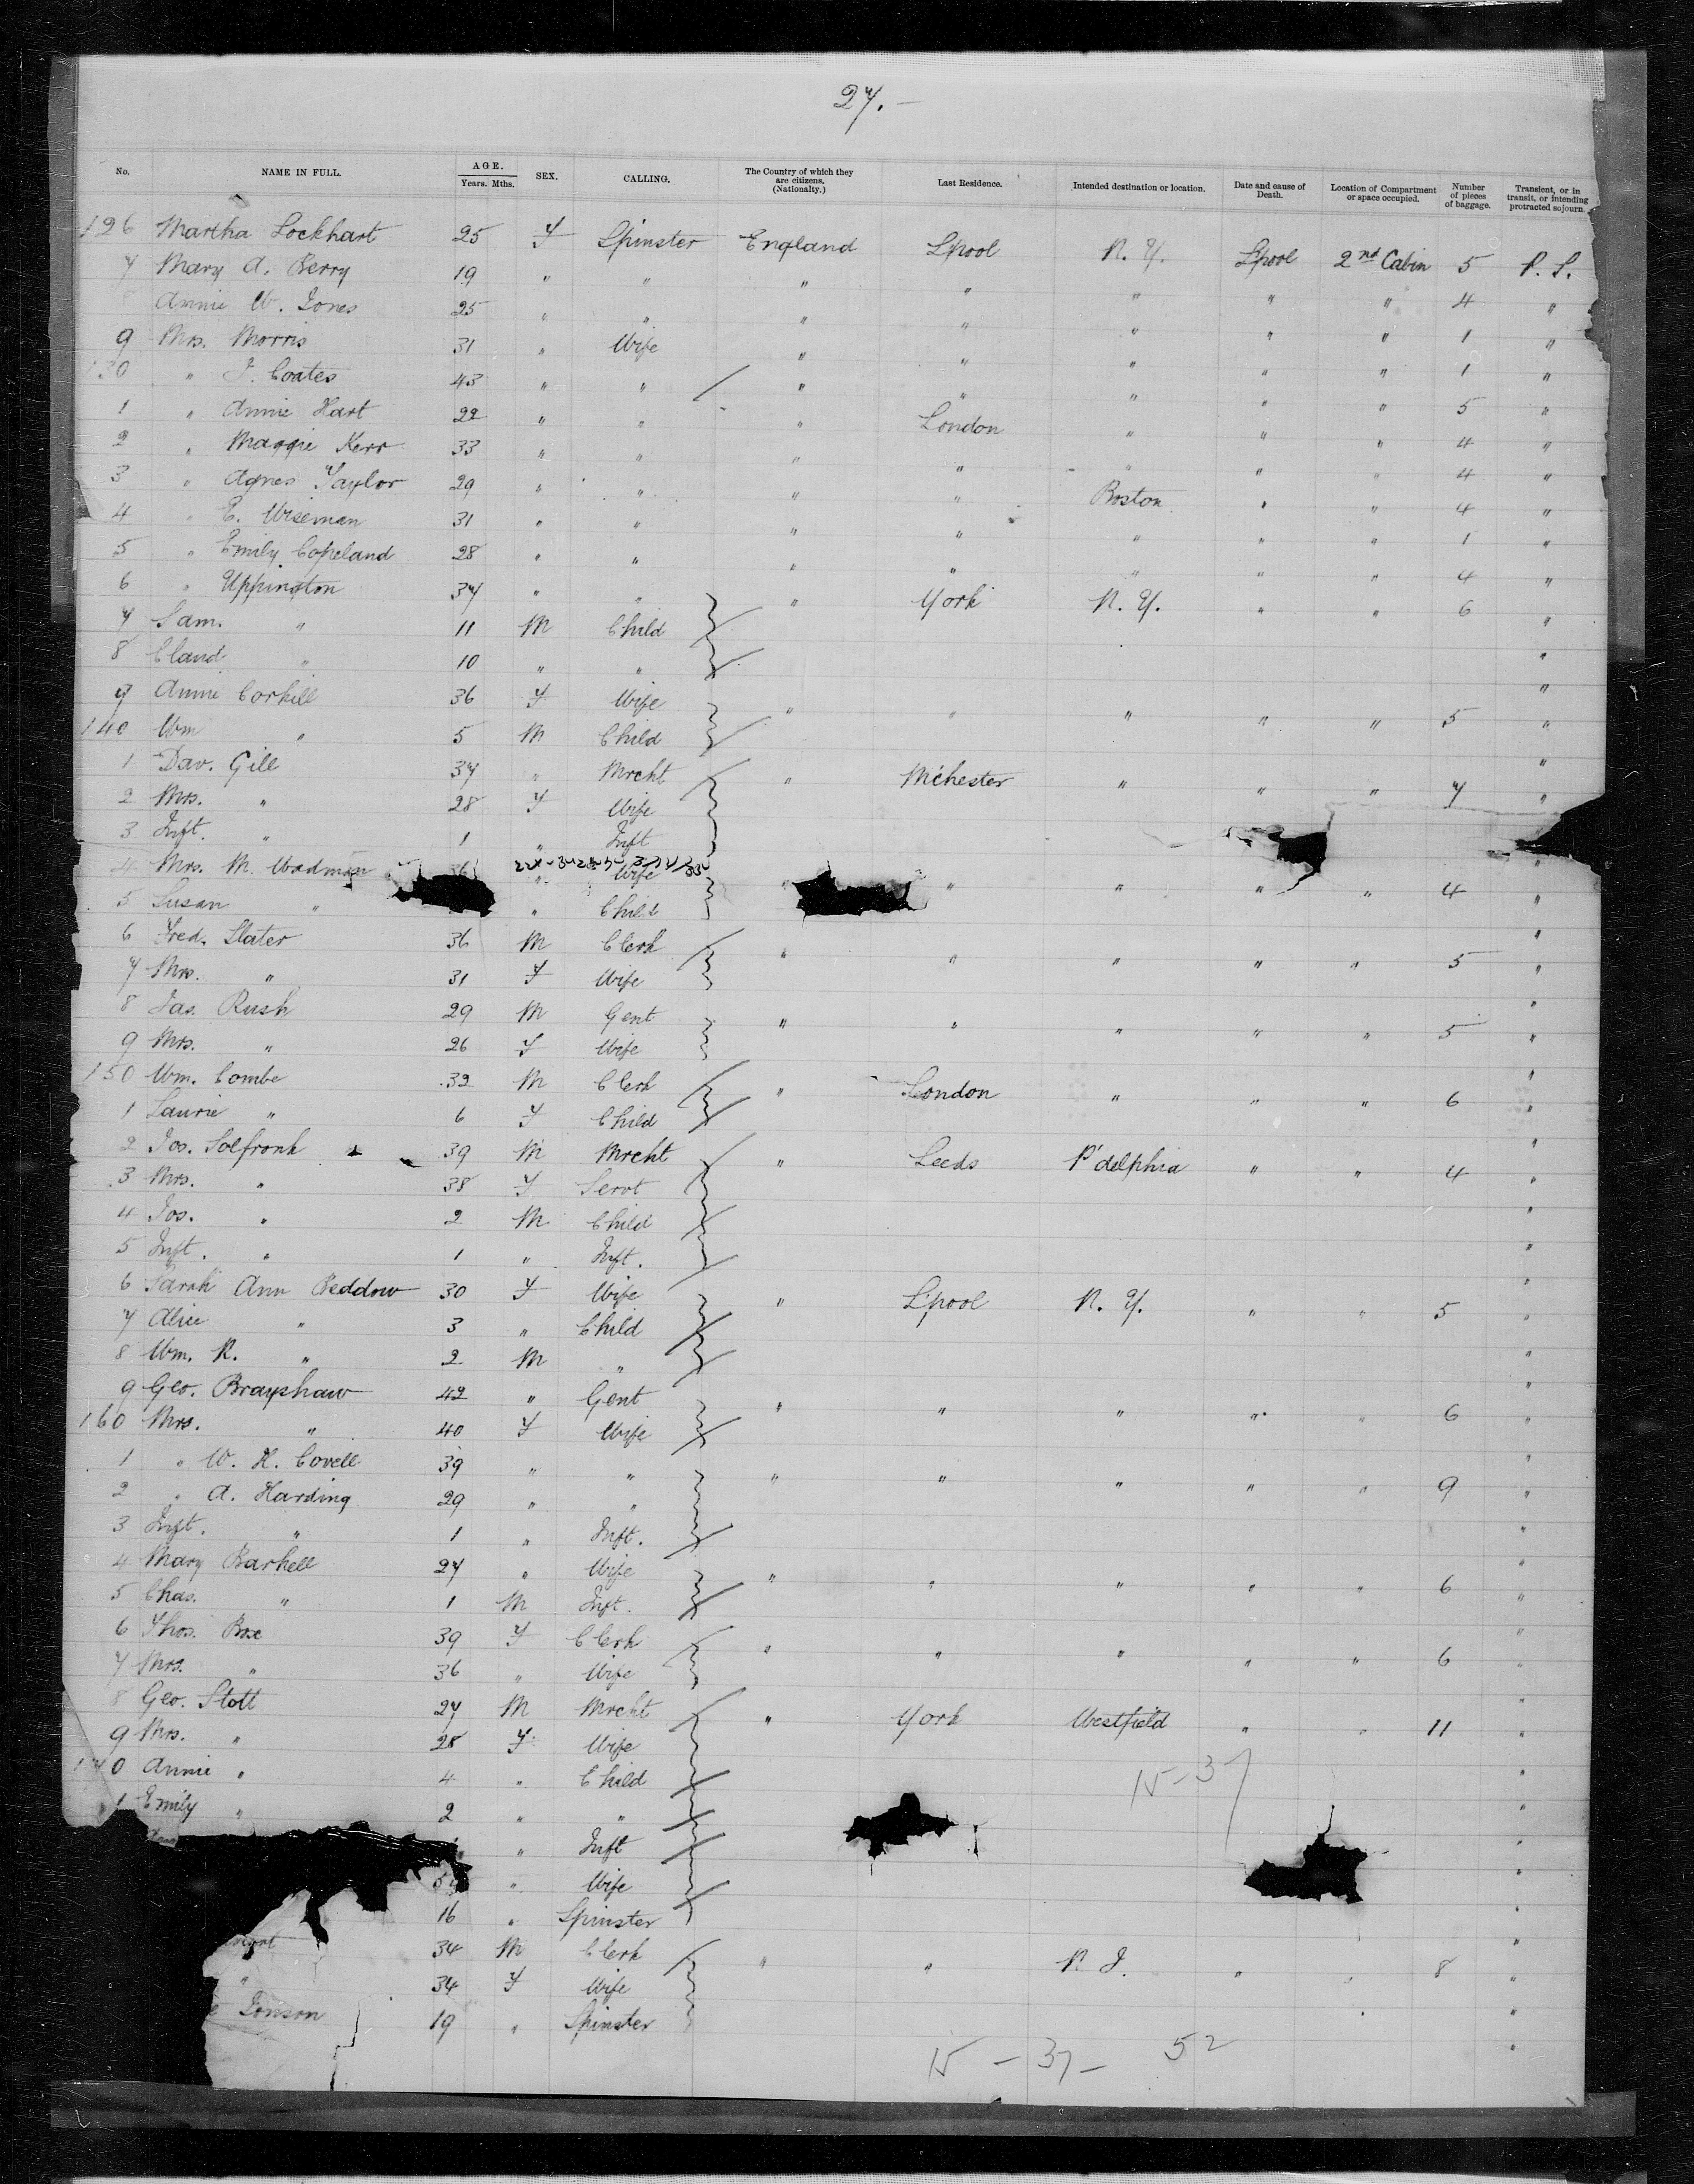 27.-
No. NAME IN FULL. AGE. Years. Mths. SEX. CALLING. The Country of which they are citizens. (Nationalty.) Last Residence. Intended destination or location. Date and cause of Death. Location of Compartment or space occupied. Number of pieces of baggage. Transient, or in transit, or intending protracted sojourn.
126 Martha Lockhart 25 F Spinster England L'pool N. Y. L'pool 2nd Cabin 5 P. S.
7 Mary A. Berry 19 " " " " " " " 4 "
Annie W. Jones 25 " " " " " " " 1 "
9 Mrs. Morris 31 " Wife " " " " " 1 "
130 " J. Coates 43 " " " " " " " 5 "
1 " Annie Hart 22 " " " London " " " 4 "
2 " Maggie Kerr 33 " " " " " " " 4 "
3 " Agnes Taylor 29 " " " " Boston " " 4 "
4 " E. Wiseman 31 " " " " " " " 1 "
5 " Emily Copeland 28 " " " " " " " 4 "
6 " Uppington 37 " " " York N. Y. " " 6 "
7 Sam. " 11 M Child "
8 Claud " 10 " " "
9 Annie Corkill 36 F Wife " " " " " 5 "
140 Wm " 5 M Child "
1 Dav. Gill 37 " Mrcht " M'chester " " " 7 "
2 Mrs. " 28 F Wife
3 Inft. " 1 " Inft "
4 Mrs. M. 36 " Wife " " " " " 4 "
5 Susan " " Child "
6 Fred. Slater 36 M Clerk " " " " " 5 "
7 Mrs. " 31 F Wife "
8 Jas. Rush 29 M Gent " " " " " 5 "
9 Mrs. " 26 F Wife "
150 Wm. Combe 32 M Clerk " London " " " 6 "
1 Laurie " 6 F Child "
2 Jos. Solfronk 39 M Mrcht " Leeds P'delphia " " 4 "
3 Mrs. " 38 F Servt "
4 Jos. " 2 M Child "
5 Inft. " 1 " Inft. "
6 Sarah Ann Beddow 30 F Wife " L'pool N. Y. " " 5 "
7 Alice " 3 " Child "
8 Wm. R. " 2 M " "
9 Geo. Brayshaw 42 " Gent " " " " " 6 "
160 Mrs. " 40 F Wife "
1 " W. H. Covell 39 " " " " " " " 9 "
2 " A. Harding 29 " " "
3 Inft. " 1 " Inft. "
4 Mary Barkell 27 " Wife " " " " " 6 "
5 Chas. " 1 M Inft. "
6 Thos. Box 39 F Clerk " " " " " 6 "
7 Mrs. " 36 " Wife "
8 Geo. Stott 27 M Mrcht " York Westfield " " 11 "
9 Mrs. " 28 F Wife "
170 Annie " 4 " Child 15-37 "
1 Emily " 2 " " "
" Inft "
" Wife "
16 " Spinster "
34 M Clerk " " N. J. " " 8 "
" 34 F Wife "
Jonson 19 " Spinster "
15 - 37 - 52